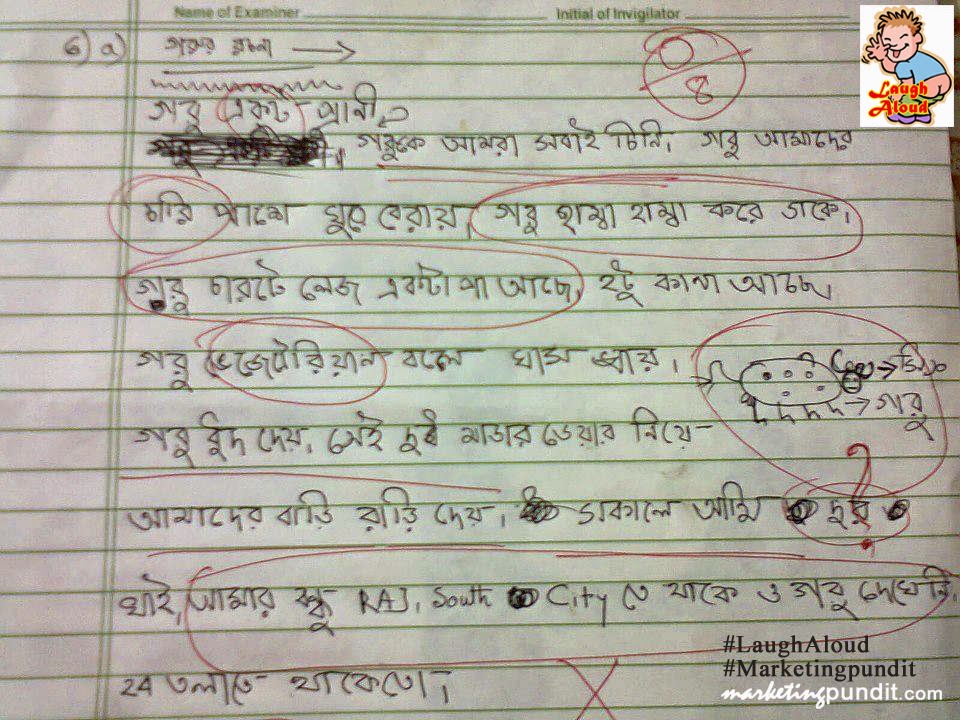 Name of Examiner Initial of Invigilator
Laugh Aloud
6) a) গরুর রচনা →
0/8
গরু একটা প্রানী।
গরুকে আমরা সবাই চিনি, গরু আমাদের
চারি পাশে ঘুরে বেরায়, গরু হাম্বা হাম্বা করে ডাকে,
গরু চারটে লেজ একটা পা আছে, ২টু কান আছে,
গরু ভেজেটেরিয়ান বলে ঘাস খায়,
→ শিং
→ গরু
গরু দুদ দেয়, সেই দুধ মাডার ডেয়ার নিয়ে
আমাদের বাড়ি বাড়ি দেয়, আমি দুধ
খাই, আমার বন্ধু RAJ, South City তে থাকে ও গরু দেখেনি,
24 তলাতে থাকেতো,
#LaughAloud
#Marketingpundit
marketingpundit.com